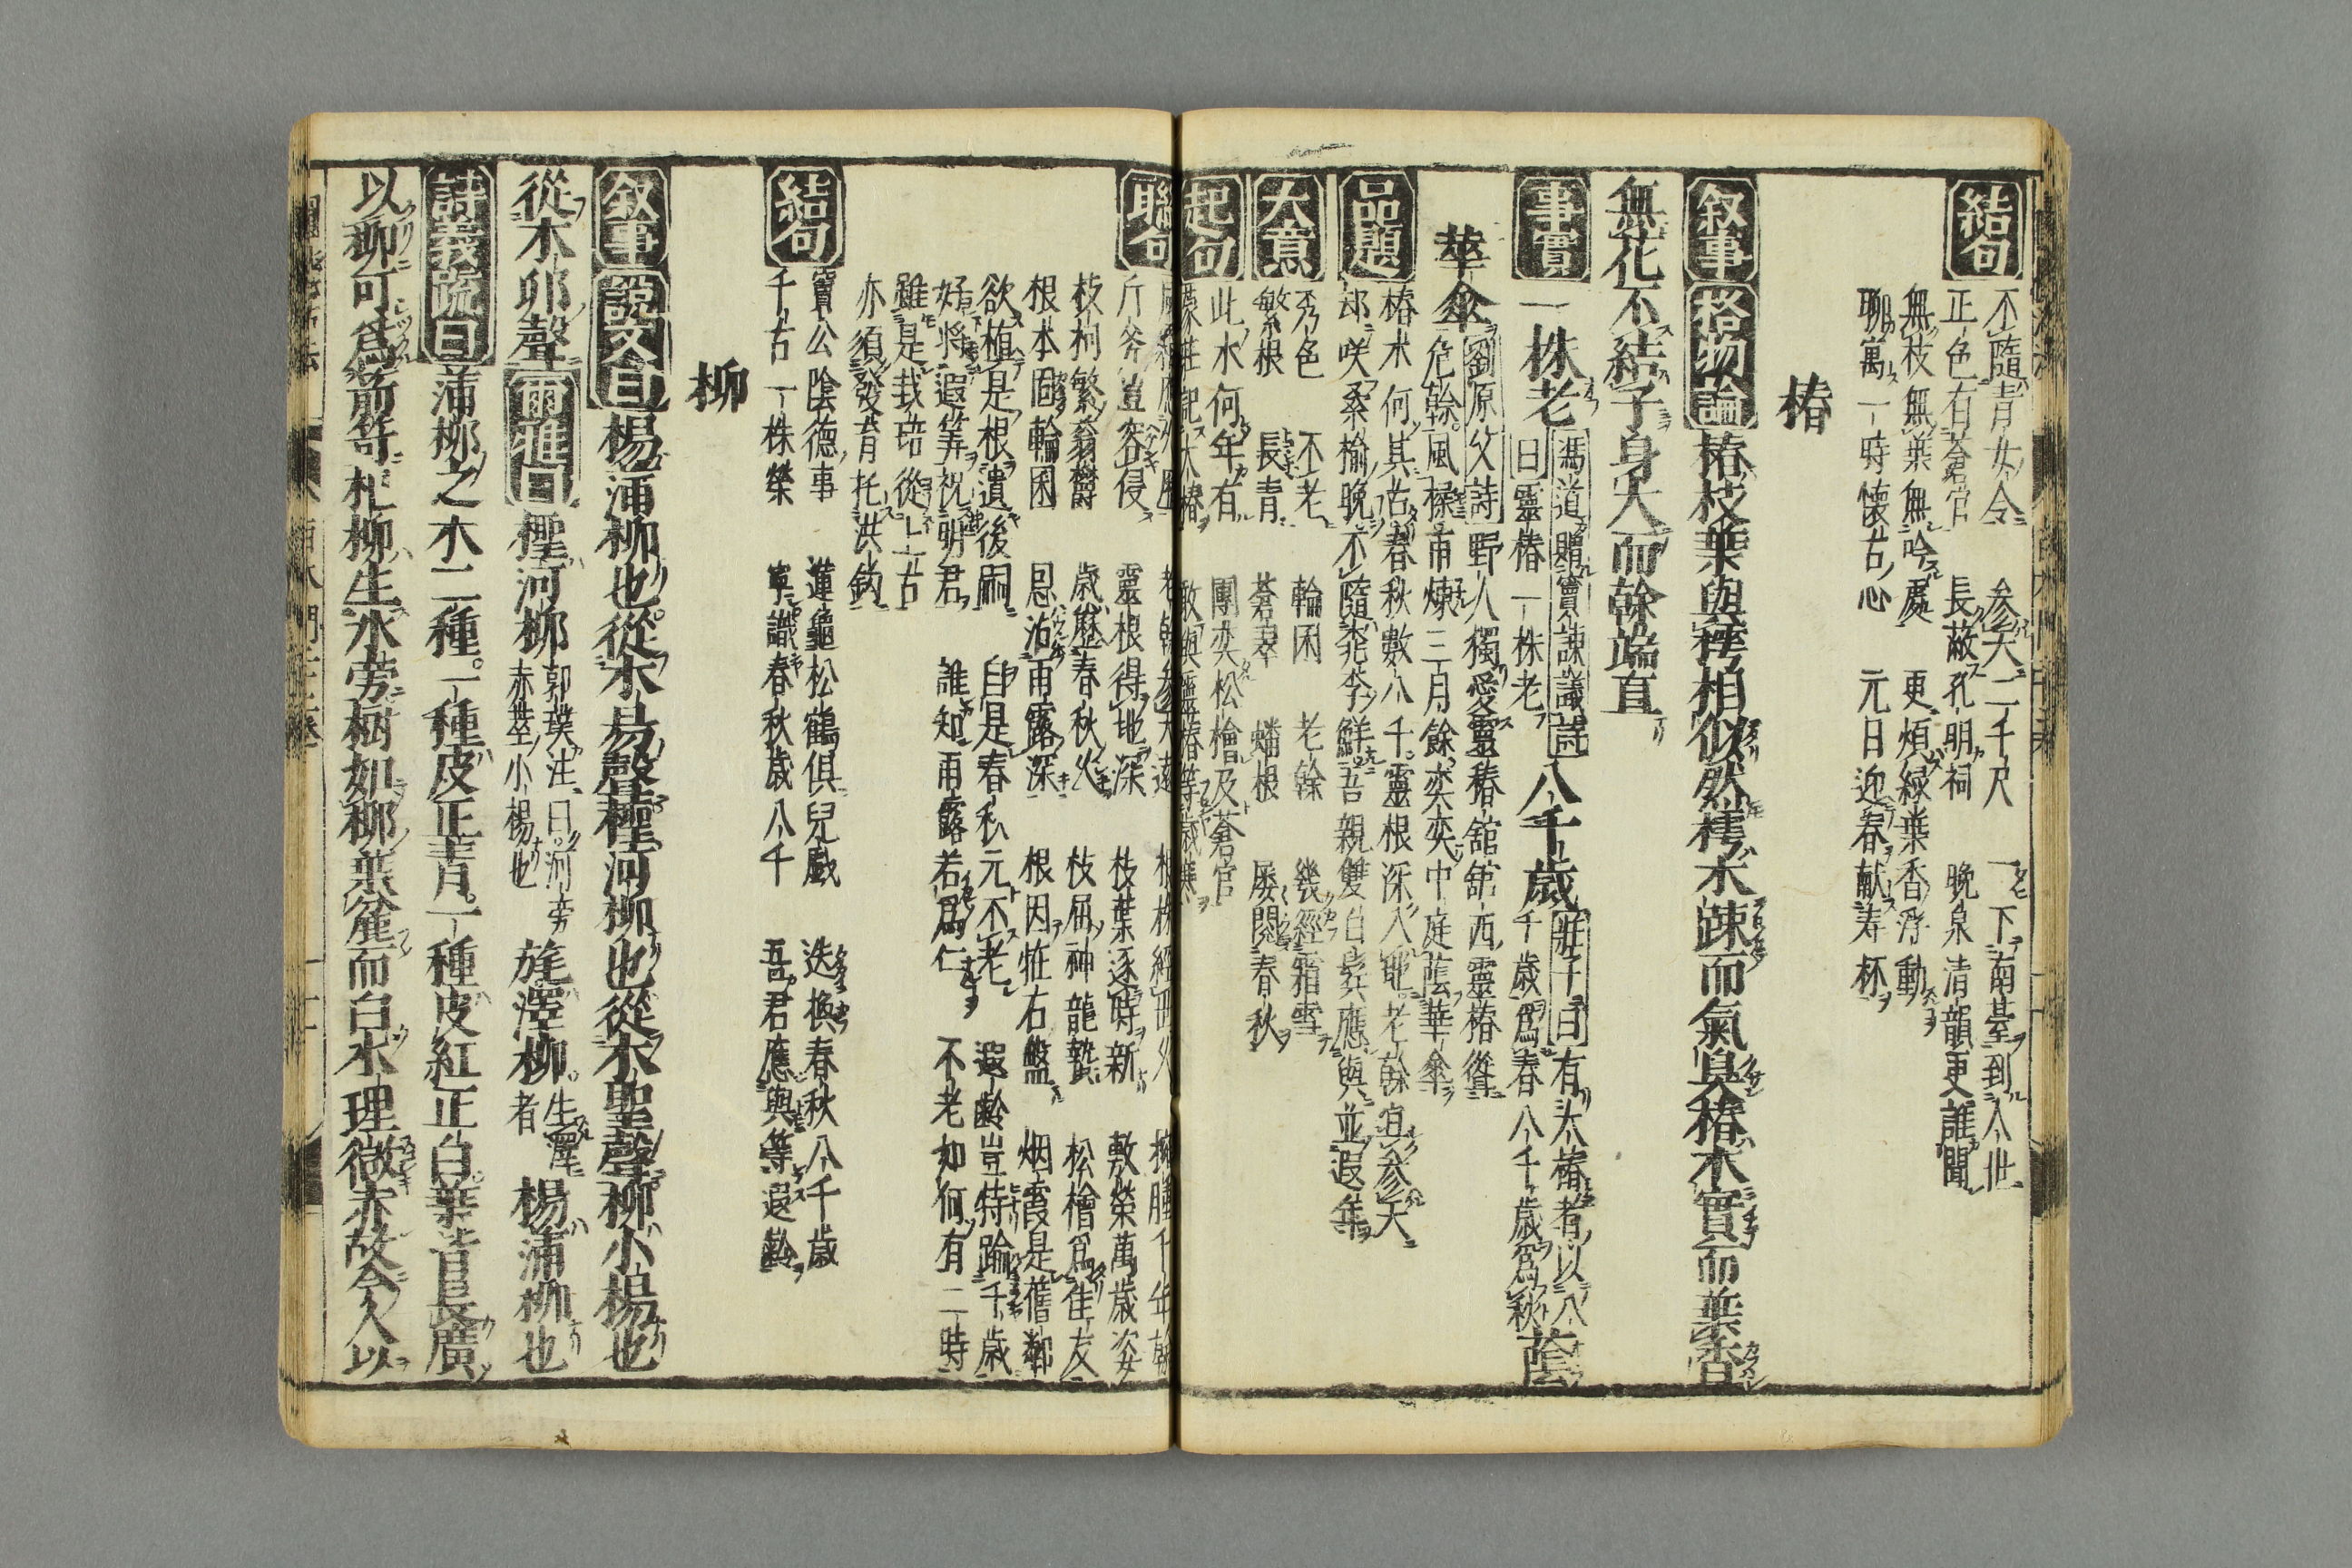 結句 不隨青女令 参天二千尺 一下南臺到人世
正色有蒼官 長蔽孔明祠 晚泉清韻更誰聞
無枝無葉無吟處 更煩緑葉香浮動
聊寓一時懐古心 元日迎春献寿杯
椿
叙事 格物論 椿枝葉與樗相似然樗木踈而氣臭椿木實而葉香
無花不結子身大而幹端直
事實 一株老 馮道贈竇諌議詩曰靈椿一株老 八千歲 莊子曰有大椿者以八千歳爲春八千歳爲秋 蔭
華傘 劉原父詩野人獨愛靈椿舘舘西靈椿聳危幹風榱雨煉三月餘奕奕中庭蔭華傘
品題 椿木何其古春秋數八千靈根深入地老幹宜参天
却咲桑榆晚不隨桃李鮮吾親雙白髮應與並遐年
大意 秀色 不老 輪囷 老幹 幾經霜雪
繁根 長青 蒼翠 蟠根 屡閲春秋
起句 此木何年有 團奕松檜及蒼官
聯句
斤斧豈容侵 靈根得地深 枝葉逐時新 敷榮萬歳姿
枝柯繁蓊欝 歳歷春秋久 枝屈神龍蟄 松檜爲佳友
根本固輪囷 恩沾雨露深 根因怪右盤 烟霞是舊鄰
欲植是根遺後嗣 自是春秋元不老 遐齡豈特踰千歳
好將遐筭祝明君 誰知雨露若爲仁 不老如何有二時
雖是栽培從上古
亦須發育托洪鈞
結句 竇公陰德事 蓮龜松鶴俱兒戯 迭換春秋八千歳
千古一株榮 寧識春秋歳八千 吾君應與等遐齡
柳
叙事 說文曰 楊蒲柳也從木昜聲檉河柳也從木聖聲柳小楊也
從木丣聲 爾雅曰 檉河柳 郭璞注曰河旁赤莖小楊也 旄澤柳 生澤者 楊蒲柳也
詩義疏曰 蒲柳之木二種一種皮正青一種皮紅正白葉皆長廣
以柳可爲箭笴杞柳生水旁樹如柳葉麄而白木理微赤故今人以